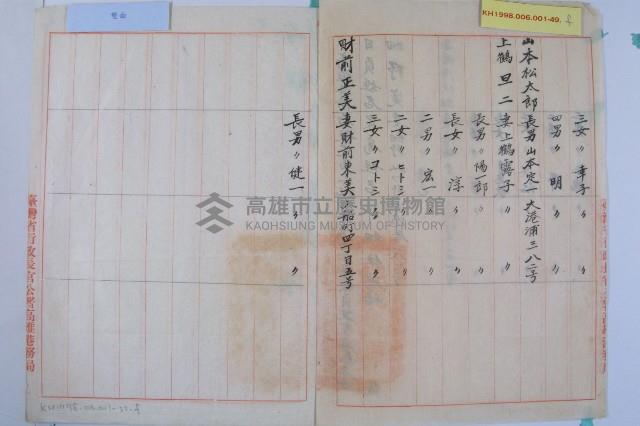 KH1998.006.001-49.
三女〃幸子〃〃
四男〃明〃〃
山本松太郎 長男山本定一 大港浦三八二号
上鶴旦二 妻上鶴露子〃〃
長男〃陽一郎〃〃
長女〃淳〃〃
二男〃宏一〃〃
二女〃ヒトシ〃〃
三女〃コトミ〃〃
財前正美 妻財前東美 船町四丁目五号
長男〃健一〃〃
臺灣省行政長官公署高雄港務局
高雄市立歷史博物館
KAOHSIUNG MUSEUM OF HISTORY